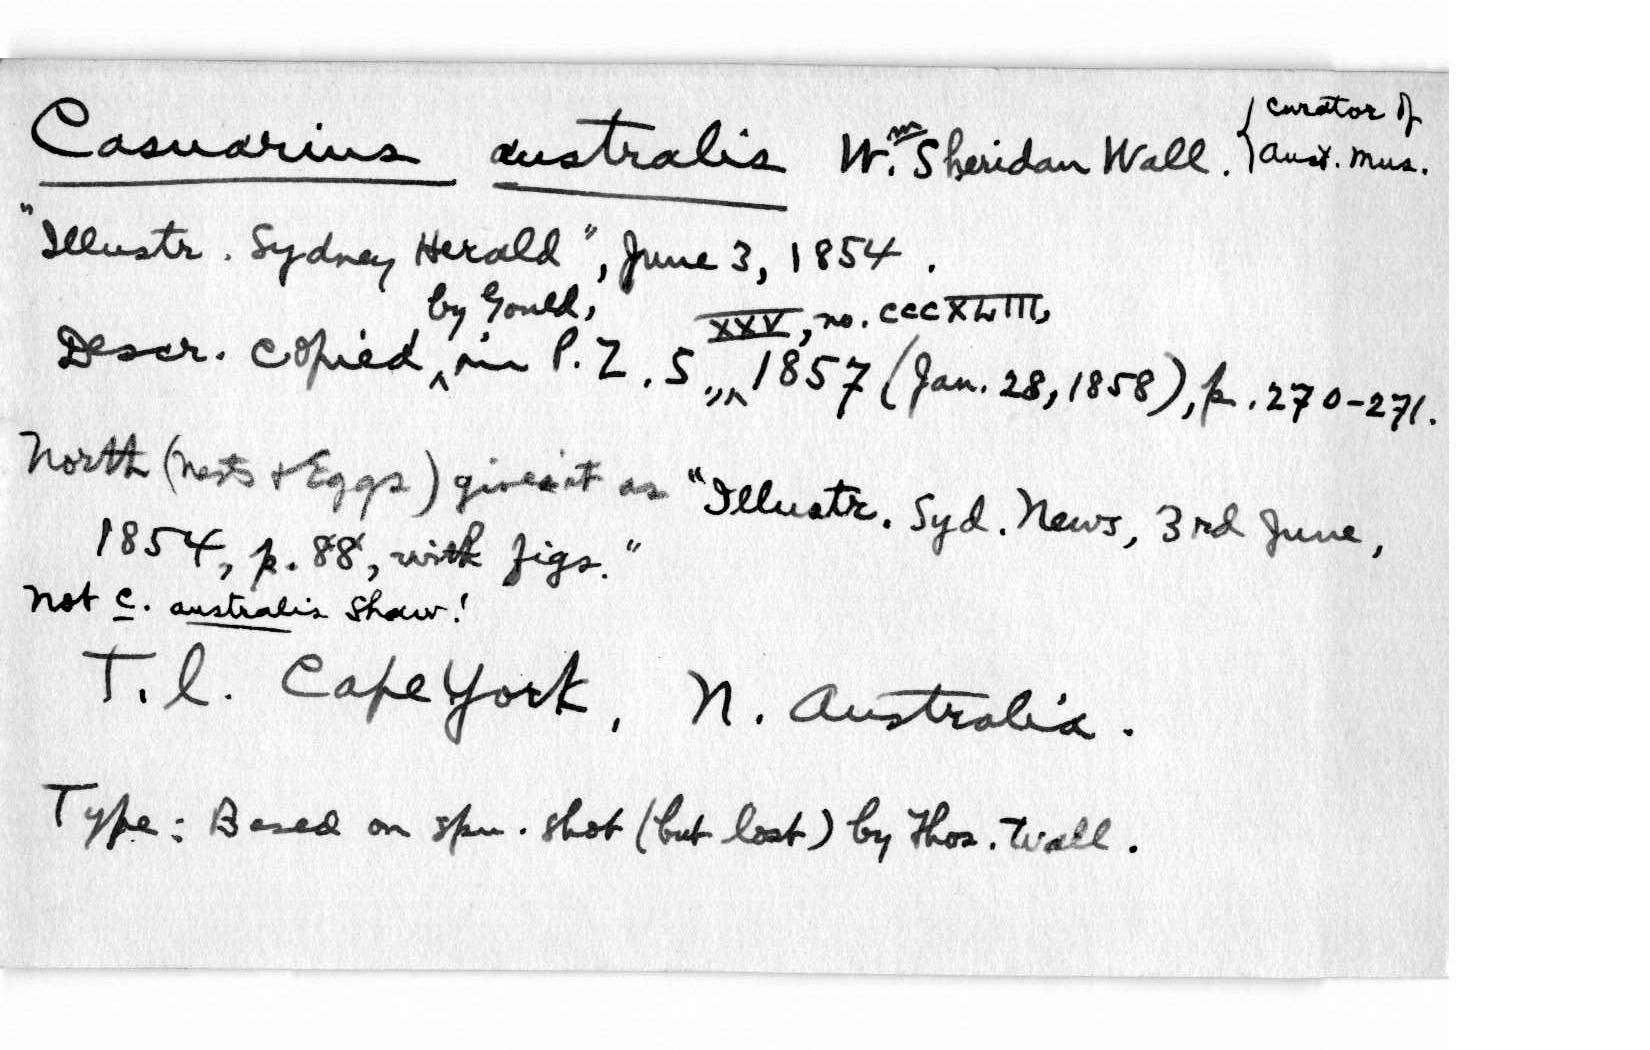 Casuarius australis Wm. Sheridan Wall. { curator of
Aust. Mus.
"Illustr. Sydney Herald", June 3, 1854.
by Gould, XXV, no. cccXLIII,
Descr. copied ^ in P. Z. S.,,^ 1857 (Jan. 28, 1858), p. 270-271.
North (Nests & Eggs) gives it as "Illustr. Syd. News, 3rd June,
1854, p. 88, with figs."
Not C. australis Shaw!
T. l. Cape York, N. Australia.
Type: Based on spn. shot (but lost) by Thos. Wall.